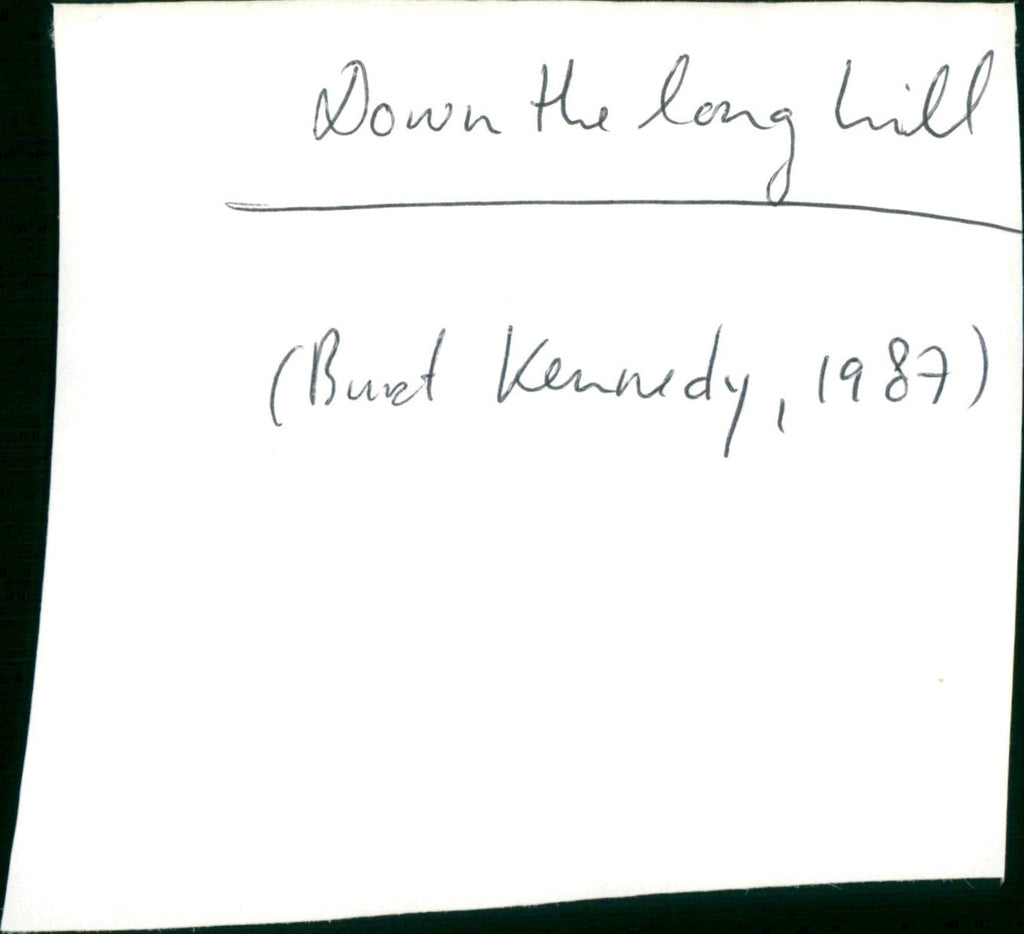 Down the long hill
(Burt Kennedy, 1987)